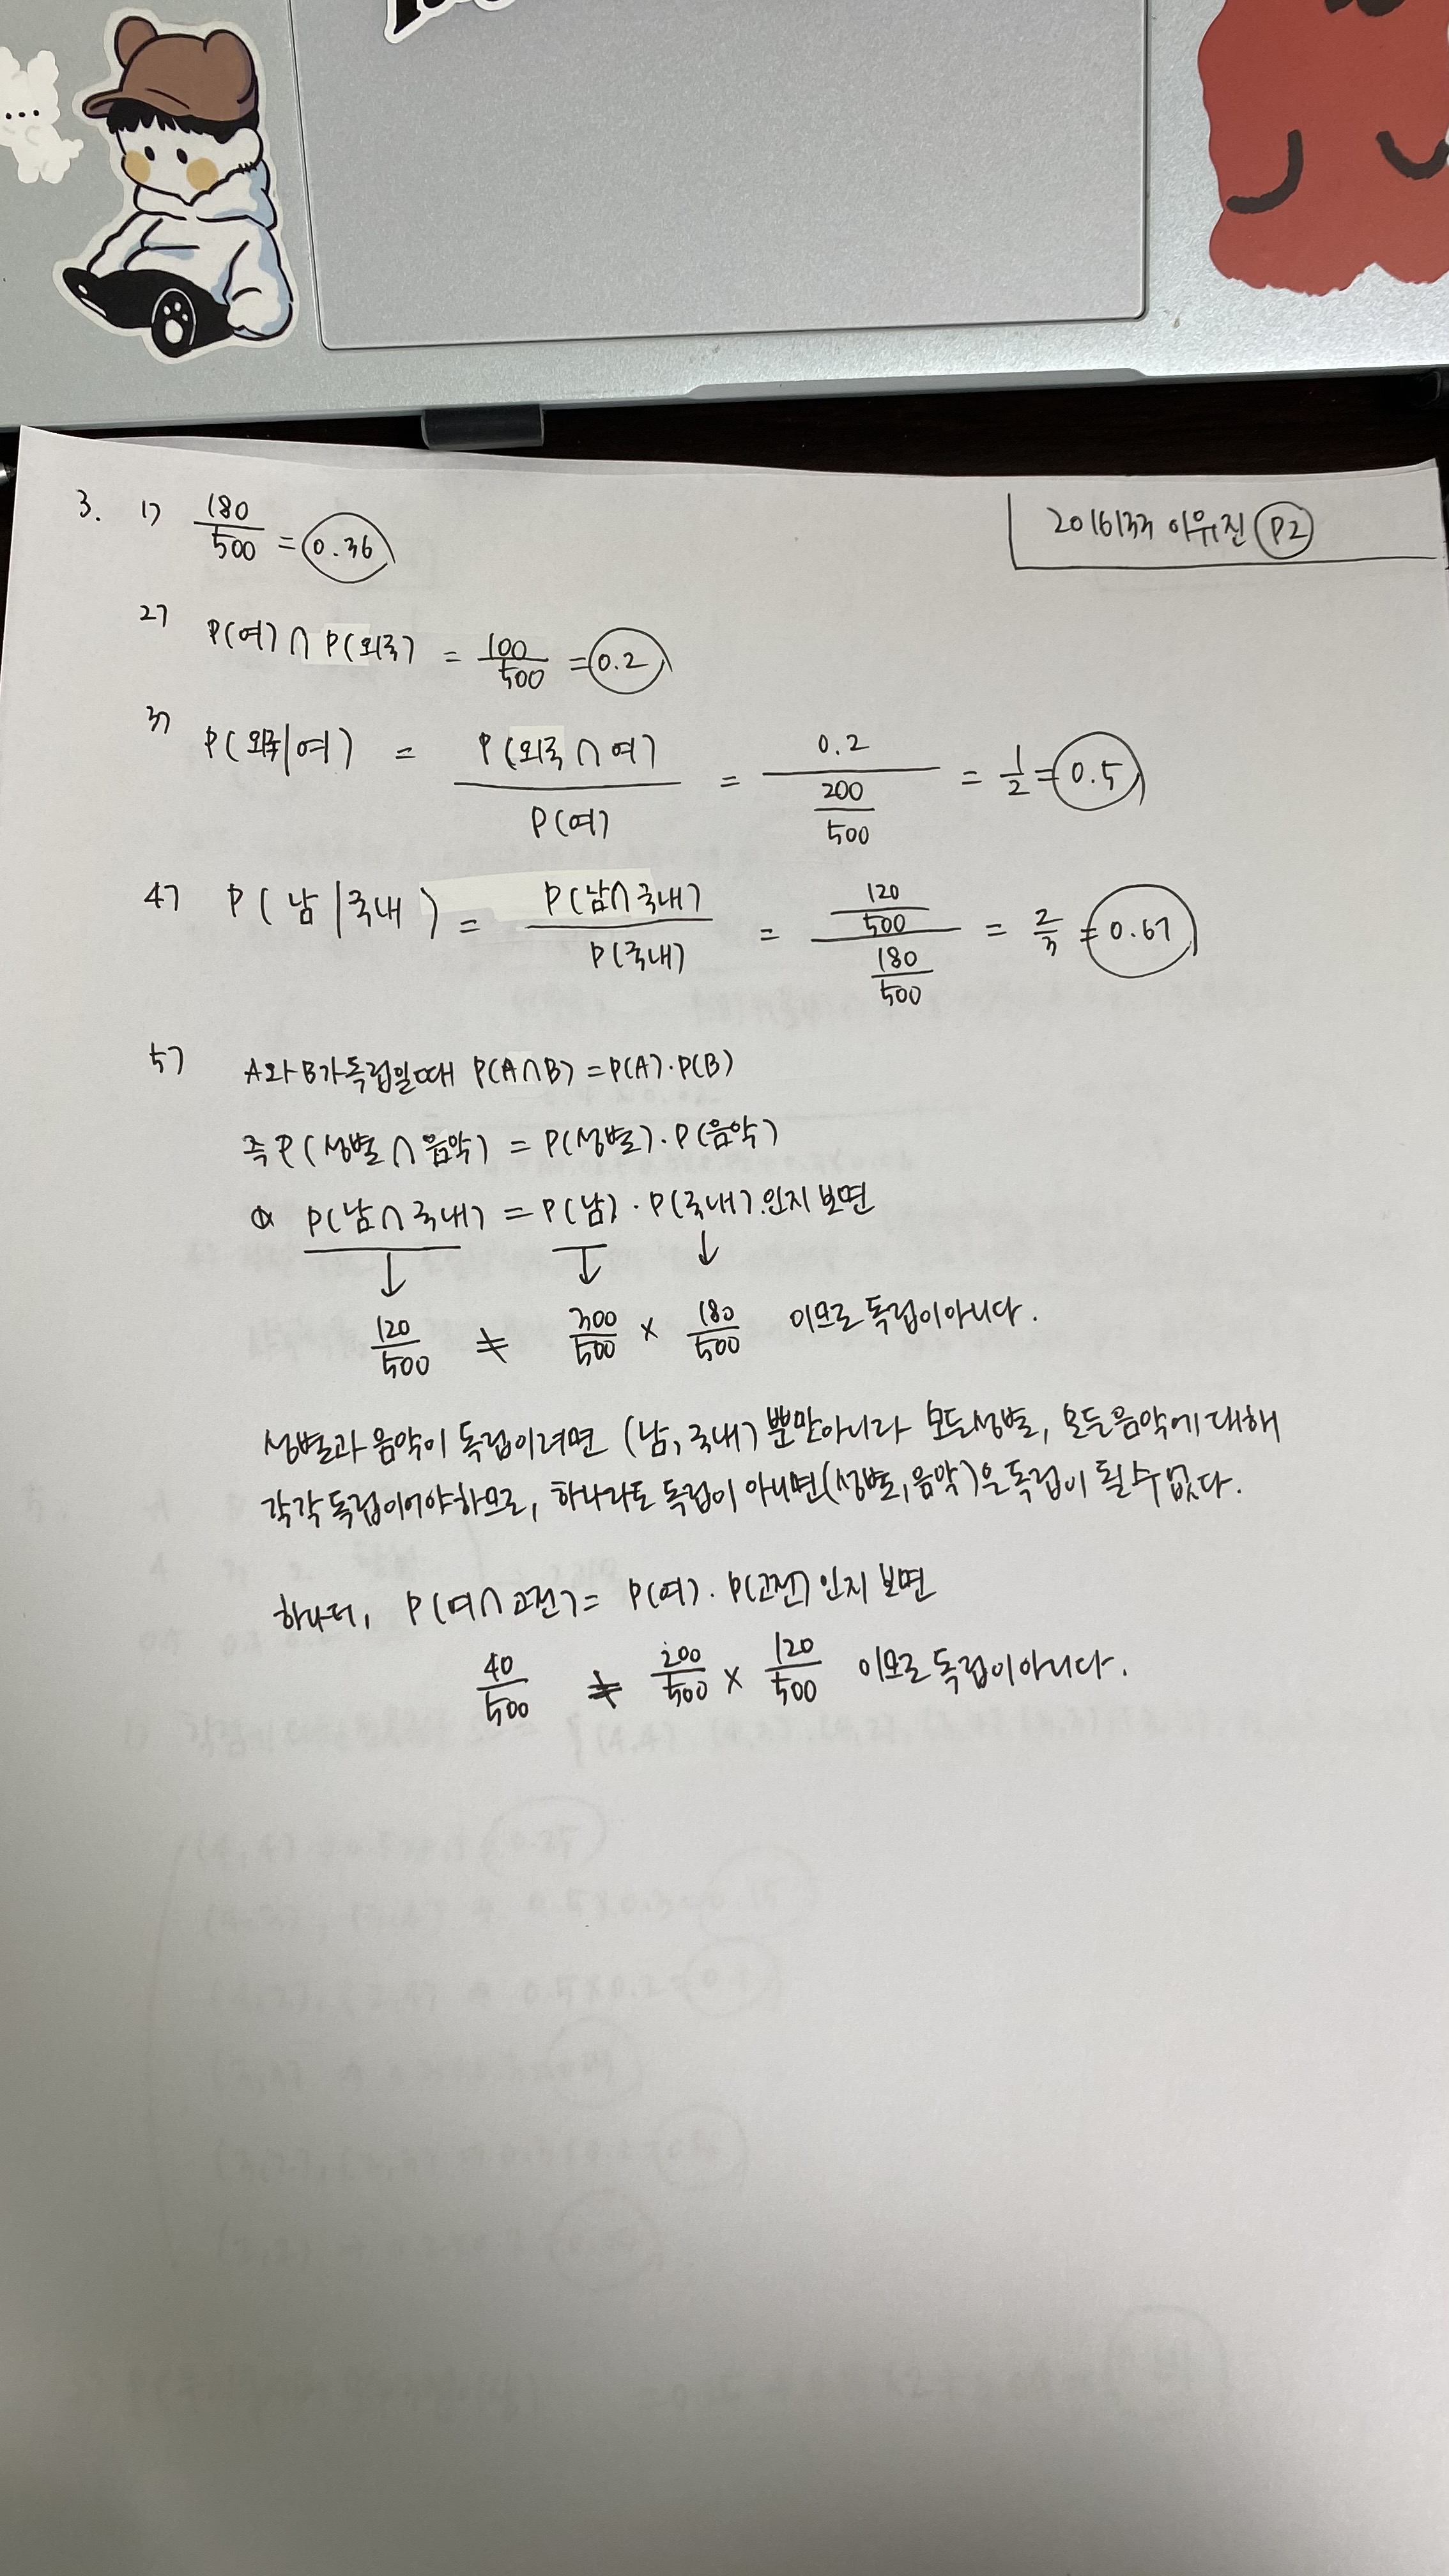 2016133 이유진 P2
3. 1) 180/500 = 0.36
2) P(여)∩P(외국) = 100/500 = 0.2
3) P(외국|여) = P(외국∩여)/P(여) = 0.2/(200/500) = 1/2 = 0.5
4) P(남|국내) = P(남∩국내)/P(국내) = (120/500)/(180/500) = 2/3 = 0.67
5) A와 B가 독립일때 P(A∩B) = P(A)·P(B)
즉 P(성별∩음악) = P(성별)·P(음악)
P(남∩국내) = P(남)·P(국내).인지 보면
↓ ↓ ↓
120/500 ≠ 300/500 × 180/500 이므로 독립이 아니다.
성별과 음악이 독립이려면 (남, 국내) 뿐만아니라 모든성별, 모든음악에 대해
각각 독립이어야하므로, 하나라도 독립이 아니면(성별,음악)은 독립이 될 수 없다.
하나더, P(여∩고전) = P(여)·P(고전)인지 보면
40/500 ≠ 200/500 × 120/500 이므로 독립이아니다.